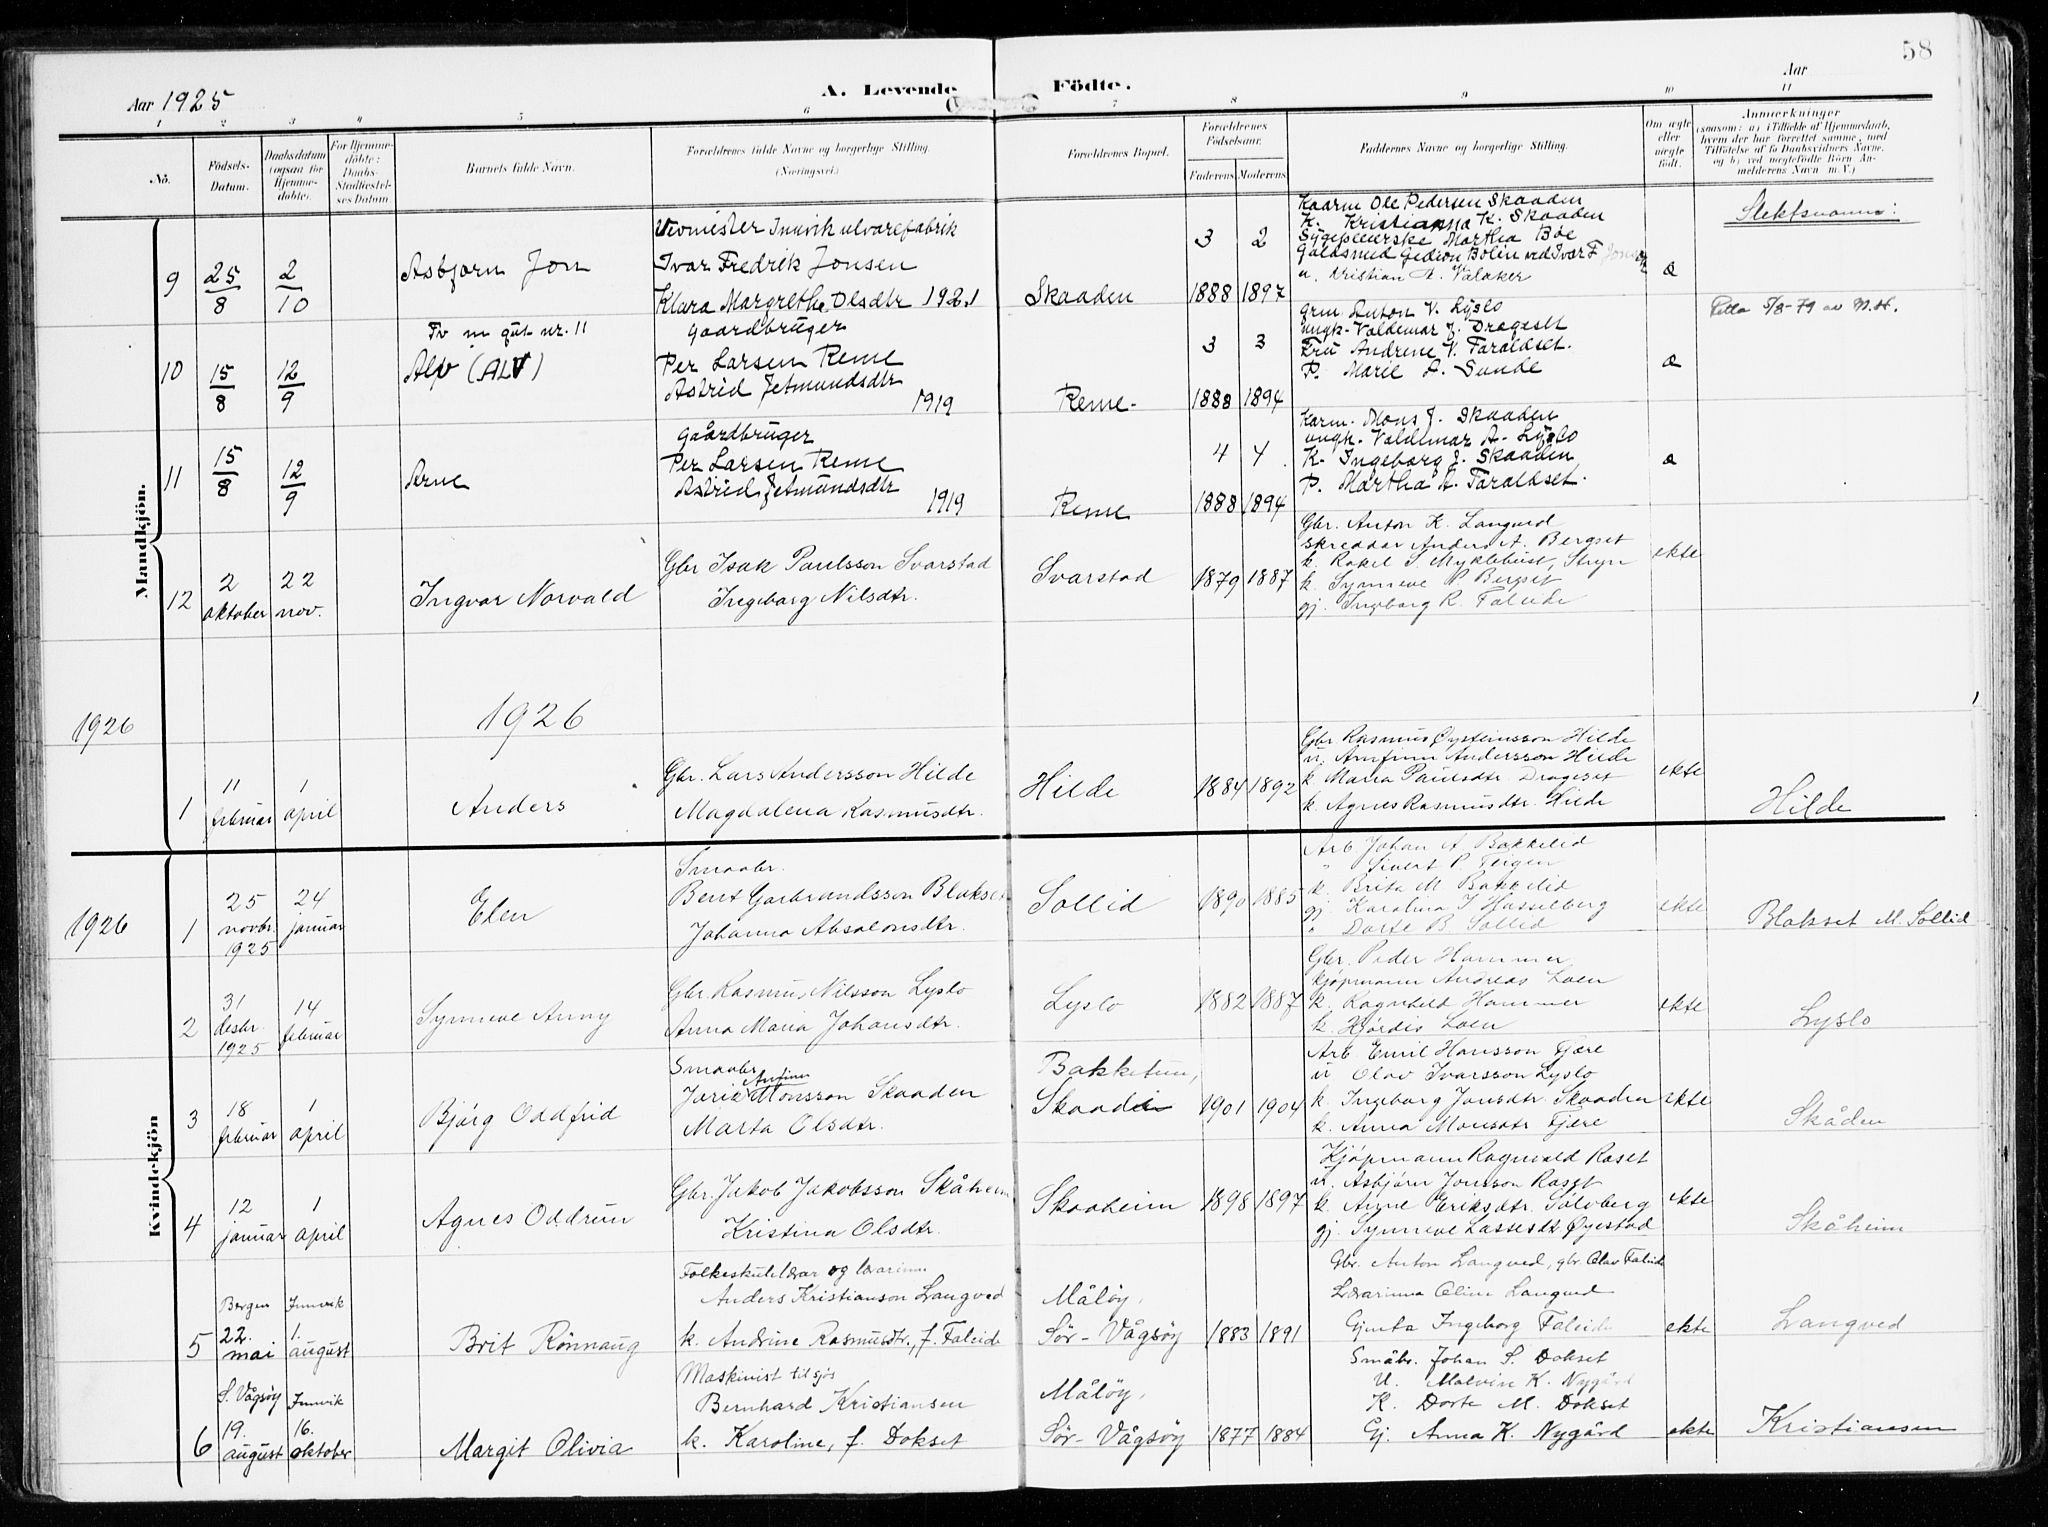 58
Aar 1925
A. Levende
Födte.
Aar
1 2 3 4 5 6 7 8 9 10 11
No.
Födsels-Datum.
Daabsdatum (ogsaa for Hjemmedöbte).
For Hjemmedöbte: Daabs-Stadfestelses Datum.
Barnets fulde Navn.
Forældrenes fulde Navne og borgerlige Stilling. (Næringsvei.)
Forældrenes Bopæl.
Forældrenes Födselsaar.
Faderens Moderens
Faddernes Navne og borgerlige Stilling.
Om ægte eller uægte födt.
Anmærkninger
(saasom: a) i Tilfælde af Hjemmedaab, hvem der har forrettet samme, med Tilföielse af to Daabsvidners Navne, og b) ved uegtefödte Börn Anmelderens Navn m. V.)
Slektsnamn:
Mandkjön.
9
25/8
2/10
Asbjørn Jon
Vevmester Innvik ulvarefabrik
Ivar Fredrik Jonsen
Klara Margrethe Olsdtr 1921
Skaaden
3 2
1888 1897
Kaarm Ole Pedersen Skaaden
K. Kristianna K. Skaaden
Sygepleierske Martha Bøe
Guldsmed Gedion Bolin ved Ivar F Jonsen
u. Kristian A. Valaker
æ
10
15/8
12/9
Tv m gut nr. 11
Alv (ALV)
Gaardbruger
Per Larsen Reme
Astrid Jetmundsdtr
1919
Reme
3 3
1888 1894
grm. Anton V. Lyslo
ungk. Valdemar J. Drageset
Fru Andrene V. Taraldset.
P. Marie A. Sunde
æ
11
15/8
12/9
Arne
Gaardbruger
Per Larsen Reme
Astrid Jetmundsdtr
1919
Reme
4 4
1888 1894
Karm. Mons J. Skaaden
ungk. Valdemar A. Lyslo
K. Ingeborg J. Skaaden
P. Martha A. Taraldset.
æ
12
2 oktober
22 nov.
Ingvar Norvald
Gbr Isak Paulsson Svarstad
Ingeborg Nilsdtr.
Svarstad
1879 1887
Gbr. Anton K. Langved
skreddar Anders A. Bergset
k. Rakel S. Myklebust, Stryn
k. Synneve P. Bergset
gj. Ingeborg R. Faleide
ekte
1926
1926
1
11 februar
1 april
Anders
Gbr. Lars Andersson Hilde
Magdalena Rasmusdtr.
Hilde
1884 1892
Gbr Rasmus Øysteinsson Hilde
u. Arnfinn Andersson Hilde
k Maria Paulsdtr. Drageset
k. Agnes Rasmusdtr. Hilde
ekte
Hilde
Kvindekjön
1926
1
25 novbr. 1925
24 januar
Elen
Smaabr.
Bent Garbrandsson Blakset
Johanna Absalonsdtr.
Sollid
1890 1885
Arb Johan A Bakkelid
" Sivert P. Teigen
k. Brita M. Bakkelid
gj. Karolina J Hasselberg
" Dorte B. Sollid
ekte
Blakset M. Sollid
2
31 desbr. 1925
14 februar
Synneve Anny
Gbr. Rasmus Nilsson Lyslo
Anna Maria Johansdtr.
Lyslo
1882 1887
Gbr. Peder Hammer
kjøpmann Andreas Loen
k. Ragnhild Hammer
k. Hjørdis Loen
ekte
Lyslo
3
18 februar
1 april
Bjørg Oddfrid
Smaabr
Arnfinn
Monsson Skaaden
Marta Olsdtr.
Bakketun,
Skaaden
1901 1904
Arb Emil Hansson Tjøre
u Olav Ivarsson Lyslo
k. Ingeborg Jonsdtr. Skaaden
k. Anna Monsdtr Tjøre
ekte
Skåden
4
12 januar
1 april
Agnes Oddrun
Gbr. Jakob Jakobsson Skåheim
Kristina Olsdtr.
Skaaheim
1898 1897
Kjøpmann Ragnvald Raset
u. Asbjørn Jonsson Raset
k. Anne Eriksdtr. Sølvberg
gj. Synneve Lassesdt Øyestad
ekte
Skåheim
5
Bergen 22. mai
Innvik 1. august
Brit Rønnaug
Folkeskulelærar og lærarinne
Anders Kristianson Langved
k. Andrine Rasmusdtr., f. Faleide
Måløy,
Sør-Vågsøy
1883 1891
Gbr. Anton Langved, gbr. Olav Faleide
Lærarinna Oline Langved
Gjenta Ingeborg Faleide
ekte
Langved
6
S. Vågsøy 19. august
Innvik 16. oktober
Margit Olivia
Maskinist til sjøs
Bernhard Kristiansen
k. Karoline, f. Dokset
Måløy,
Sør-Vågsøy
1877 1884
Småbr. Johan S. Dokset
U. Malvin K. Nygård
K. Dorte M. Dokset
Gj. Anna K. Nygård
ekte
Kristiansen